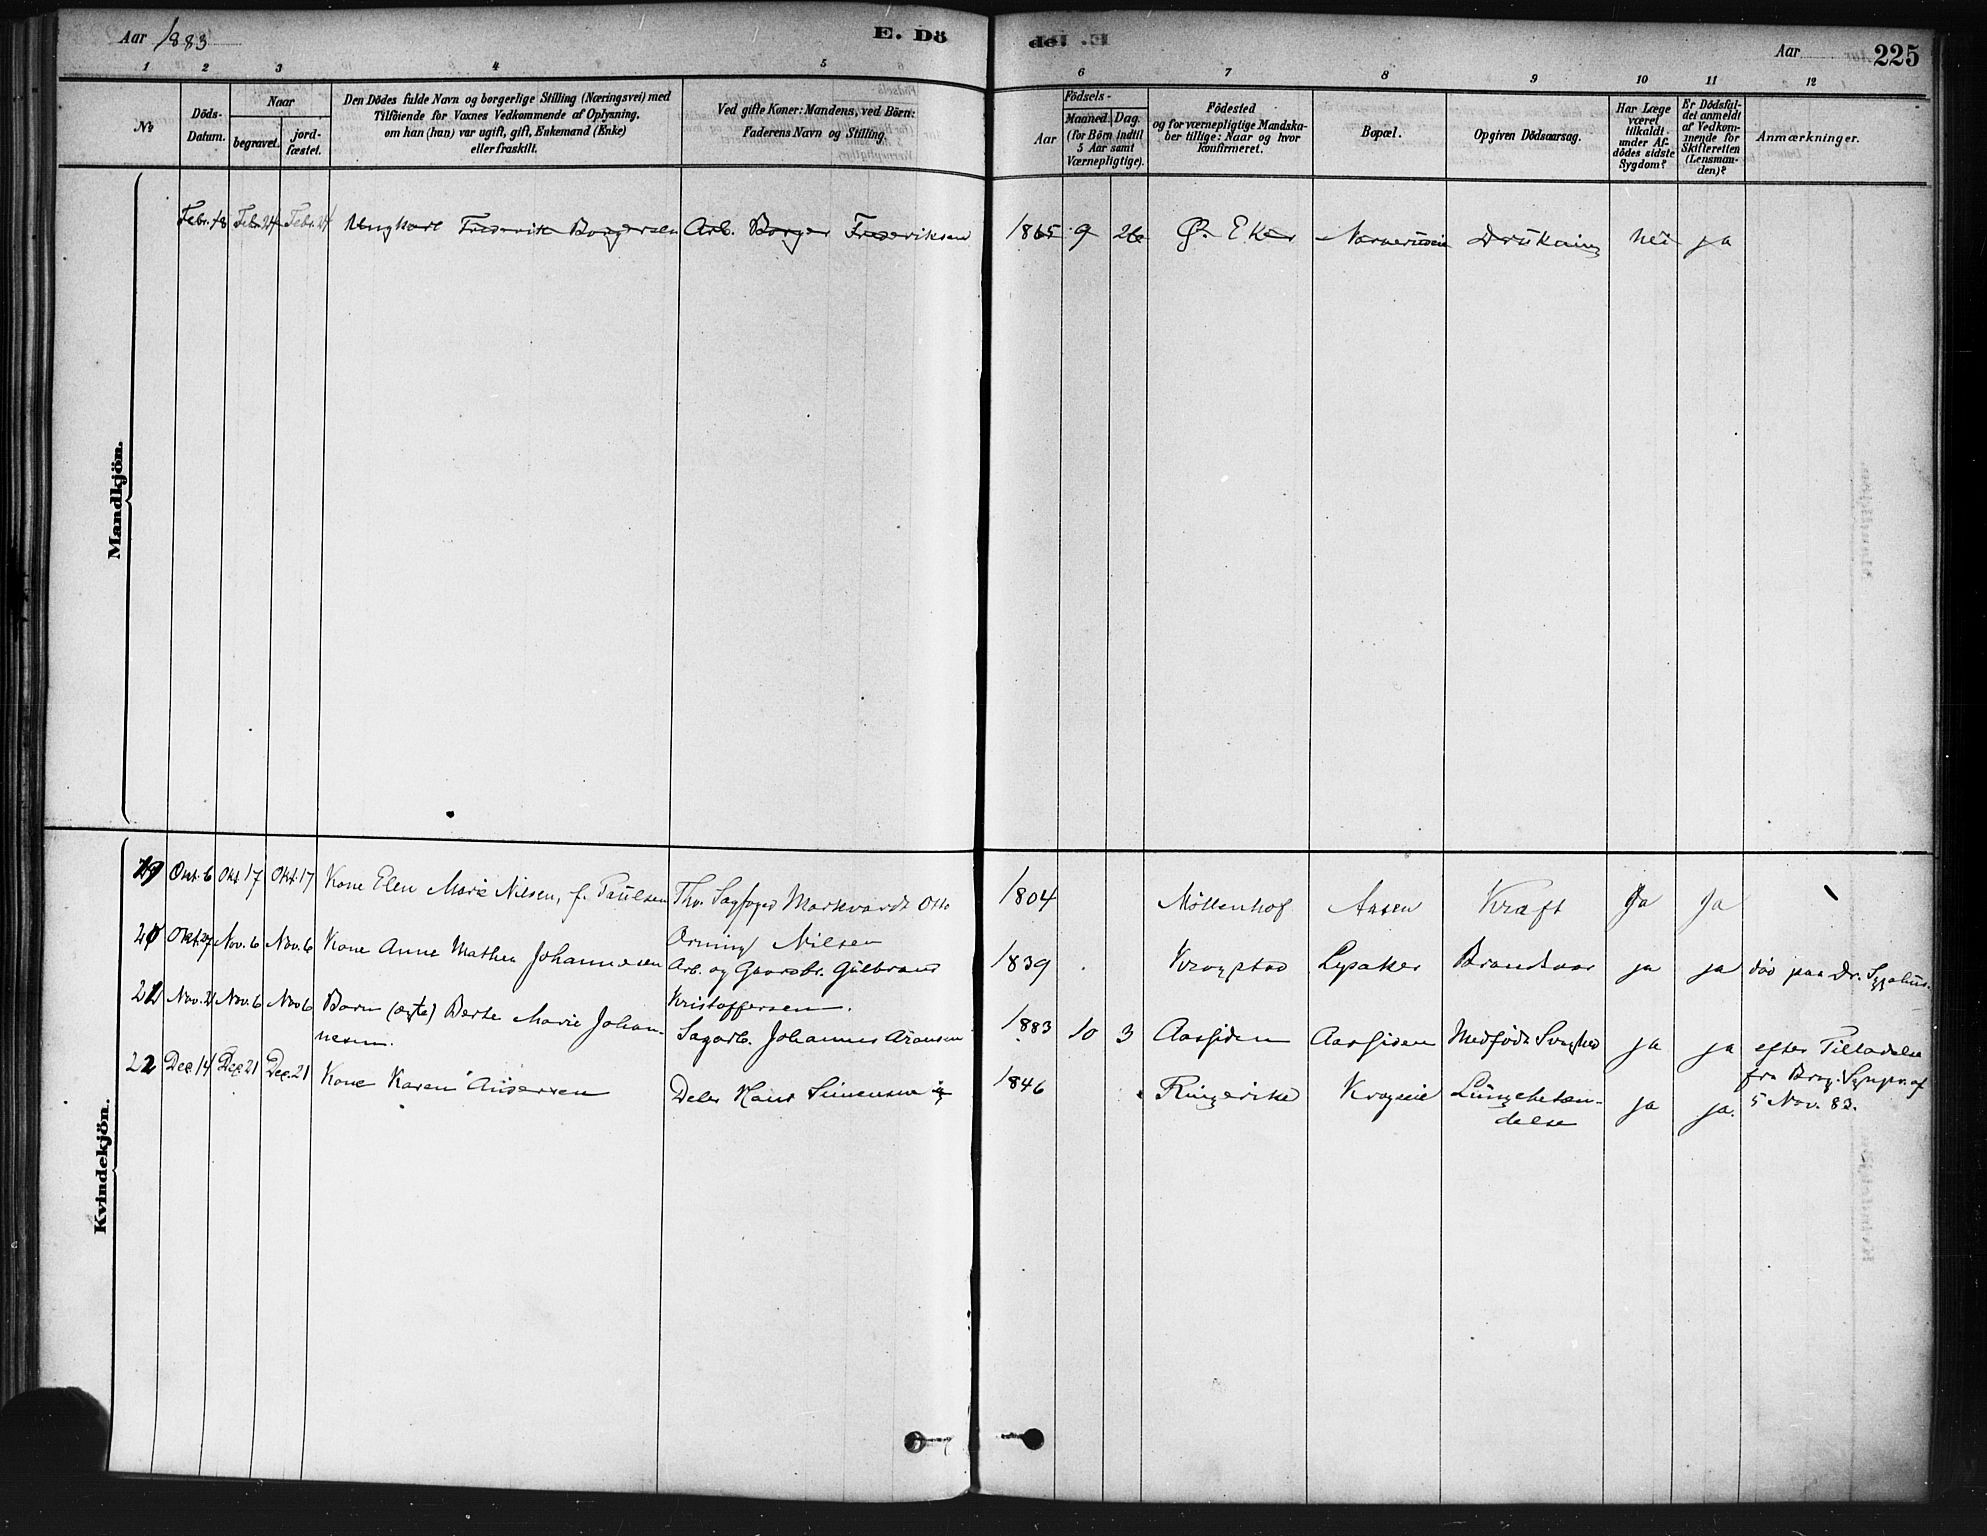 Aar 1883
E. Dö
de. E.
Aar
225
1 2 3 4 5 6 7 8 9 10 11 12
No
Döds-
Datum.
Naar
begravet.
jord-
fæstet.
Den Dödes fulde Navn og borgerlige Stilling (Næringsvei) med
Tilföiende for Voxnes Vedkommende af Oplysning,
om han (hun) var ugift, gift, Enkemand (Enke)
eller fraskilt.
Ved gifte Koner: Mandens, ved Börn:
Faderens Navn og Stilling.
Födsels-
Aar
Maaned.
Dag.
(for Börn indtil
5 Aar samt
Værnepligtige).
Födested
og for værnepligtige Mandska-
ber tillige: Naar og hvor
konfirmeret.
Bopæl.
Opgiven Dödsaarsag.
Har Læge
været
tilkaldt
under Af-
dödes sidste
Sygdom?
Er Dödsfal-
det anmeldt
af Vedkom-
mende for
Skifteretten
(Lensman-
den)?
Anmærkninger.
Mandkjön.
Febr. 18 Febr. 24 Febr. 24 Ungkarl Frederik Borgersen Arb. Borger Frederiksen 1865 9 26 Ø. Eker Drukning nei ja
Kvindekjön.
19 Okt. 6 Okt. 17 Okt. 17 Kone Elen Marie Nilsen, f. Paulsen Thv. Sagfoged Markvardt Otto 1804 Möllenhof Aasen Kraft Ja Ja
Nilsen
20 Okt. 27 Nov. 6 Nov. 6 Kone Anne Mathea Johannesen Arb. og Gaardbr. Gulbrand 1839 Krogstad Lysaker Brandsaar ja ja död paa Dr. Sygehus.
Kristoffersen.
21 Nov. 2 Nov. 6 Nov. 6 Barn (ægte) Berte Marie Johan- Sagarb. Johannes Aronsen 1883 10 3 Aassiden Aassiden Medfödt Svaghed ja ja efter Tilladelse
nesen.
fra Brag. Sognepr. af
5 Nov. 83.
22 Dec. 14 Dec. 21 Dec. 21 Kone Karen Andersen Deler Hans Simensen 1846 Ringerike Lungebetæn- ja ja.
delse